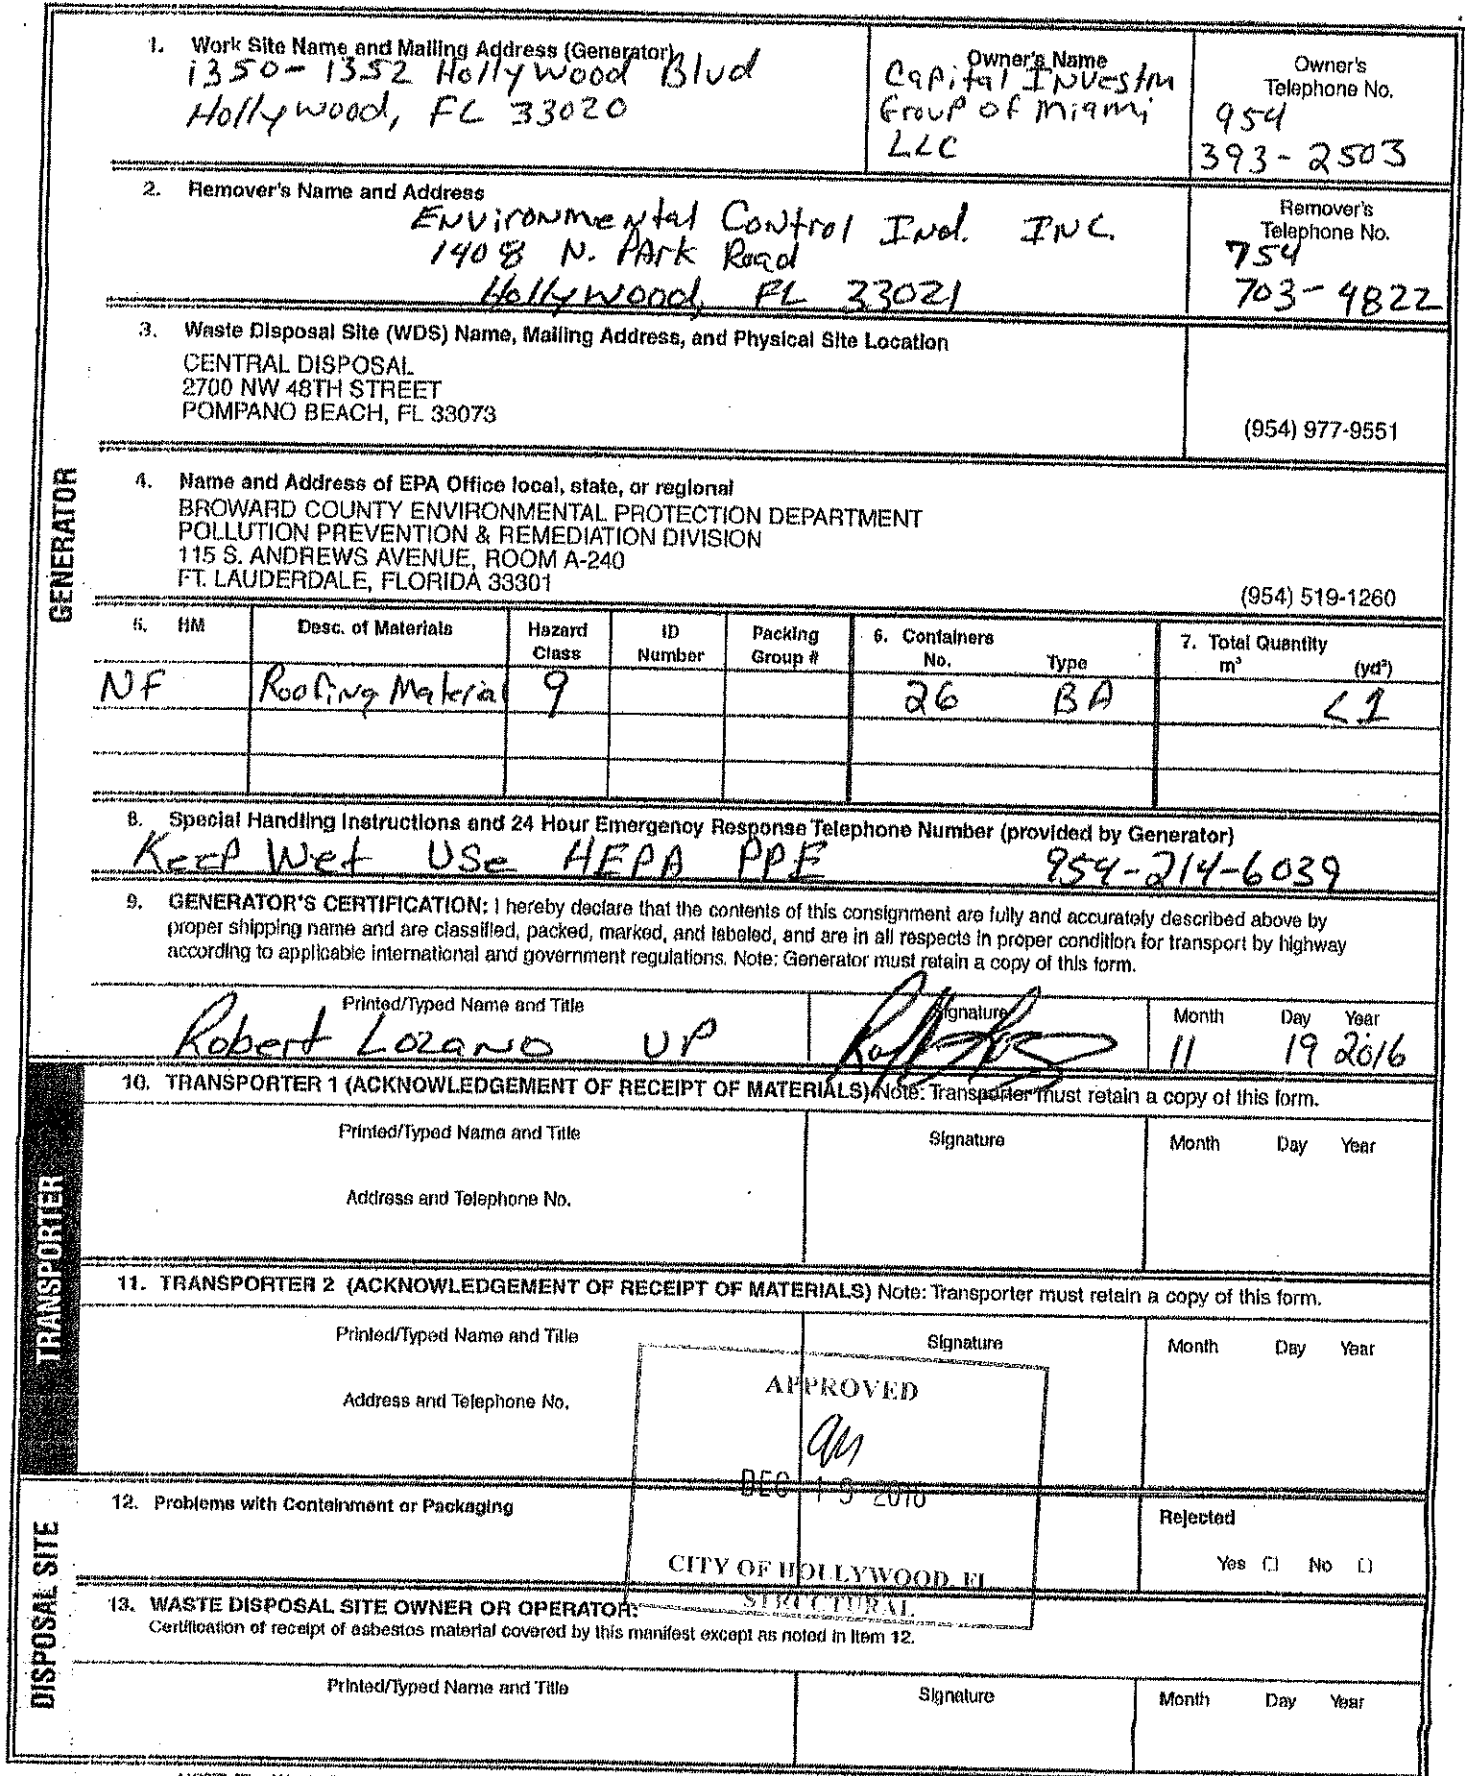 1. Work Site Name and Mailing Address (Generator)
1350-1352 Hollywood Blvd
Hollywood, FL 33020
Owner's Name
Capital Investm
Group of Miami
LLC
Owner's
Telephone No.
954
393-2503
2. Remover's Name and Address
Environmental Control Ind. INC.
1408 N. Park Road
Hollywood, FL 33021
Remover's
Telephone No.
754
703-4822
3. Waste Disposal Site (WDS) Name, Mailing Address, and Physical Site Location
CENTRAL DISPOSAL
2700 NW 48TH STREET
POMPANO BEACH, FL 33073
(954) 977-9551
GENERATOR
4. Name and Address of EPA Office local, state, or regional
BROWARD COUNTY ENVIRONMENTAL PROTECTION DEPARTMENT
POLLUTION PREVENTION & REMEDIATION DIVISION
115 S. ANDREWS AVENUE, ROOM A-240
FT. LAUDERDALE, FLORIDA 33301
(954) 519-1260
5. HM Desc. of Materials Hazard Class ID Number Packing Group # 6. Containers No. Type 7. Total Quantity m³ (yd³)
NF Roofing Material 9 26 BA <1
8. Special Handling Instructions and 24 Hour Emergency Response Telephone Number (provided by Generator)
Keep Wet Use HEPA PPE 954-214-6039
9. GENERATOR'S CERTIFICATION: I hereby declare that the contents of this consignment are fully and accurately described above by
proper shipping name and are classified, packed, marked, and labeled, and are in all respects in proper condition for transport by highway
according to applicable international and government regulations. Note: Generator must retain a copy of this form.
Printed/Typed Name and Title Signature Month Day Year
Robert Lozano VP 11 19 2016
TRANSPORTER
10. TRANSPORTER 1 (ACKNOWLEDGEMENT OF RECEIPT OF MATERIALS) Note: Transporter must retain a copy of this form.
Printed/Typed Name and Title Signature Month Day Year
Address and Telephone No.
11. TRANSPORTER 2 (ACKNOWLEDGEMENT OF RECEIPT OF MATERIALS) Note: Transporter must retain a copy of this form.
Printed/Typed Name and Title Signature Month Day Year
Address and Telephone No.
APPROVED
DEC 2016
CITY OF HOLLYWOOD, FL
STRUCTURAL
DISPOSAL SITE
12. Problems with Containment or Packaging
Rejected
Yes [] No []
13. WASTE DISPOSAL SITE OWNER OR OPERATOR:
Certification of receipt of asbestos material covered by this manifest except as noted in Item 12.
Printed/Typed Name and Title Signature Month Day Year